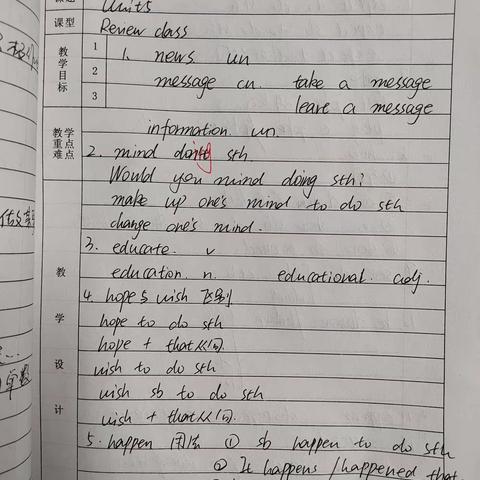 课题 Unit5
课型 Review class
教学目标 1 2 3
1. news un
message cn. take a message
leave a message
教学重点难点
information. un.
2. mind doing sth.
Would you mind doing sth?
make up one's mind to do sth
change one's mind.
3. educate. v
education. n. educational. adj.
教学设计
4. hope与wish 区别
hope to do sth
hope + that从句.
wish to do sth
wish sb to do sth
wish + that从句.
5. happen 用法 ① sb happen to do sth
② It happens / happened that